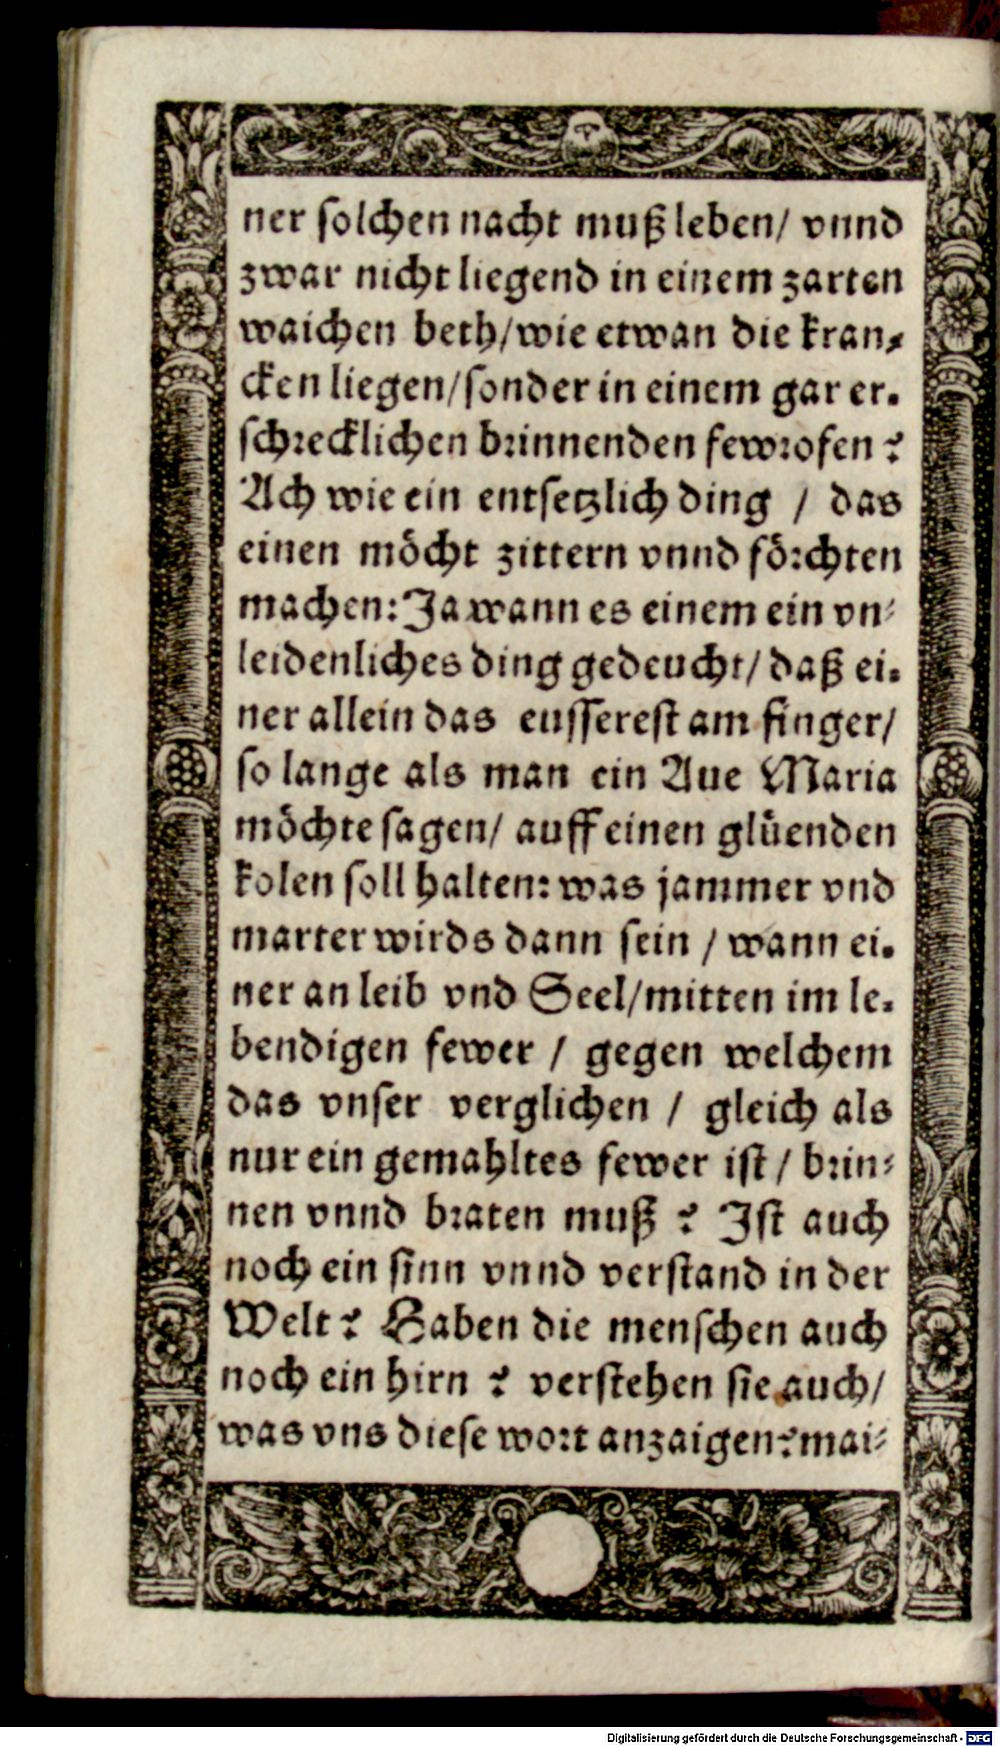 ner solchen nacht muß leben/ vnnd
zwar nicht liegend in einem zarten
waichen beth/wie etwan die kran⸗
cken liegen/sonder in einem gar er.
schrecklichen brinnenden fewrofen?
Ach wie ein entsetzlich ding / das
einen möcht zittern vnnd förchten
machen: Ja wann es einem ein vn⸗
leidenliches ding gedeucht/ daß ei.
ner allein das eusserest am finger/
so lange als man ein Aue Maria
möchte sagen/ auff einen glüenden
kolen soll halten: was jammer vnd
marter wirds dann sein / wann ei.
ner an leib vnd Seel/mitten im le.
bendigen fewer / gegen welchem
das vnser verglichen / gleich als
nur ein gemahltes fewer ist / brin⸗
nen vnnd braten muß ? Ist auch
noch ein sinn vnnd verstand in der
Welt? Haben die menschen auch
noch ein hirn ? verstehen sie auch/
was vns diese wort anzaigen?mai⸗
Digitalisierung gefördert durch die Deutsche Forschungsgemeinschaft - DFG